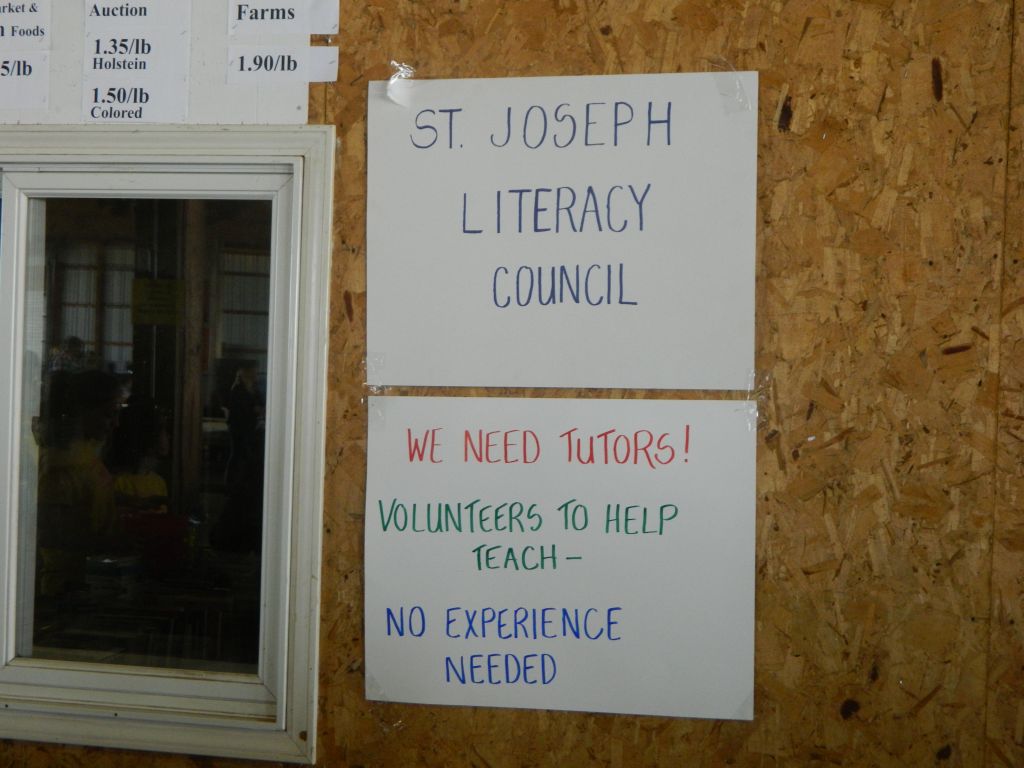 Foods
5/lb
Auction
1.35/lb
Holstein
1.50/lb
Colored
Farms
1.90/lb
ST. JOSEPH
LITERACY
COUNCIL
WE NEED TUTORS!
VOLUNTEERS TO HELP
TEACH –
NO EXPERIENCE
NEEDED